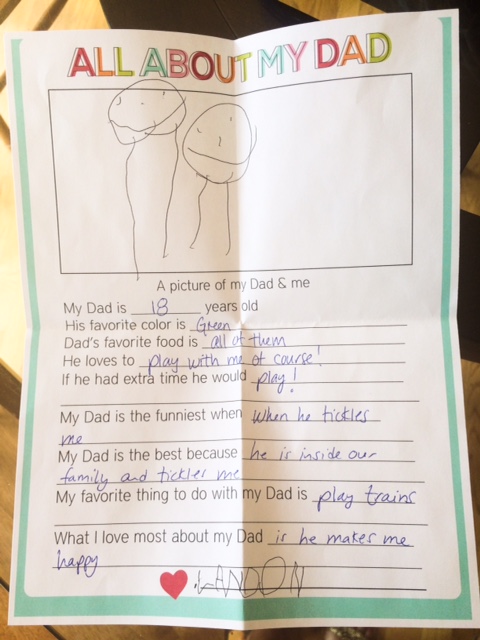 ALL ABOUT MY DAD
A picture of my Dad & me
My Dad is 18 years old
His favorite color is Green
Dad's favorite food is all of them
He loves to play with me of course!
If he had extra time he would play!
My Dad is the funniest when when he tickles
me
My Dad is the best because he is inside our
family and tickles me
My favorite thing to do with my Dad is play trains
What I love most about my Dad is he makes me
happy
LANDON